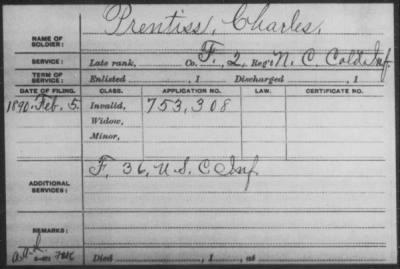 NAME OF SOLDIER: Prentiss, Charles,
SERVICE: Late rank, Co. F, 2, Reg't N. C. Cold Inf
TERM OF SERVICE: Enlisted , 1 Discharged , 1
DATE OF FILING. CLASS. APPLICATION NO. LAW. CERTIFICATE NO.
1890. Feb. 5. Invalid, 753,308
Widow,
Minor,
ADDITIONAL SERVICES: F, 36, U. S. C Inf.
REMARKS:
Died , 1 , at